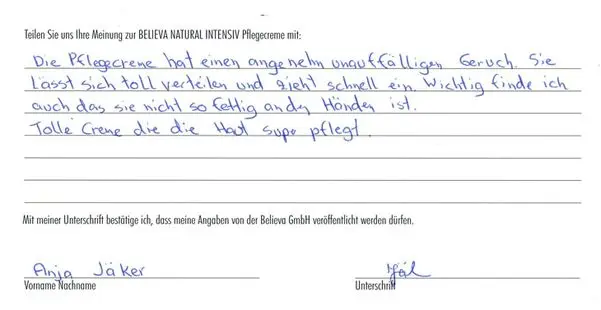 Teilen Sie uns Ihre Meinung zur BELIEVA NATURAL INTENSIV Pflegecreme mit:
Die Pflegecreme hat einen angenehm unauffälligen Geruch. Sie
lässt sich toll verteilen und zieht schnell ein. Wichtig finde ich
auch das sie nicht so fettig an den Händen ist.
Tolle Creme die die Haut supe pflegt.
Mit meiner Unterschrift bestätige ich, dass meine Angaben von der Believa GmbH veröffentlicht werden dürfen.
Anja Jäker
Vorname Nachname
Unterschrift